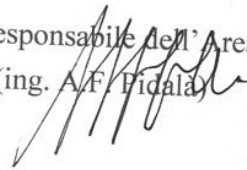 esponsabile dell'Area
(ing. A.F. Pidalà)